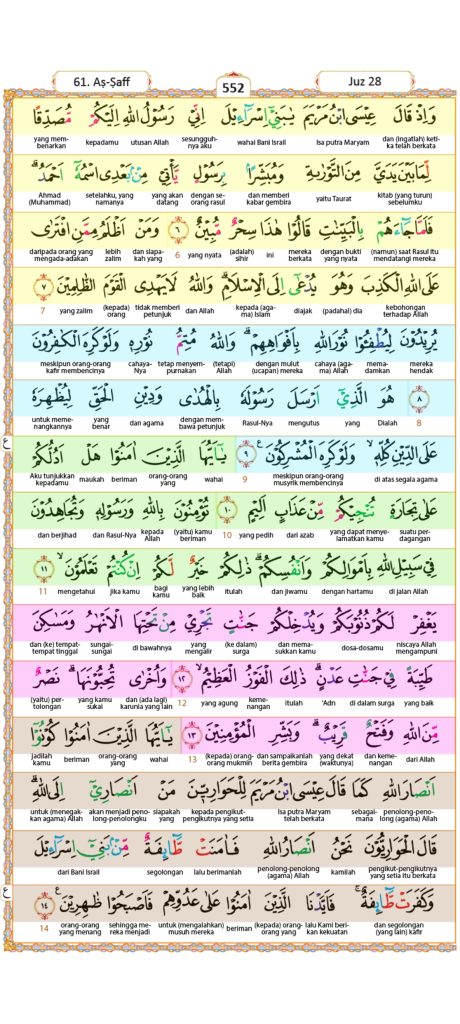 61. Aṣ-Ṣaff
552
Juz 28
وَاِذْ قَالَ عِيْسَى ابْنُ مَرْيَمَ يٰبَنِيْٓ اِسْرَاۤءِيْلَ اِنِّيْ رَسُوْلُ اللّٰهِ اِلَيْكُمْ مُّصَدِّقًا
yang mem- kepadamu utusan Allah sesungguh- wahai Bani Israil Isa putra Maryam dan (ingatlah) keti-
benarkan nya aku ka telah berkata
لِّمَا بَيْنَ يَدَيَّ مِنَ التَّوْرٰىةِ وَمُبَشِّرًاۢ بِرَسُوْلٍ يَّأْتِيْ مِنْۢ بَعْدِى اسْمُهٗٓ اَحْمَدُۗ
Ahmad setelahku, yang yang akan dengan se- dan memberi yaitu Taurat kitab (yang turun)
(Muhammad) namanya datang orang rasul kabar gembira sebelumku
فَلَمَّا جَاۤءَهُمْ بِالْبَيِّنٰتِ قَالُوْا هٰذَا سِحْرٌ مُّبِيْنٌ ٦ وَمَنْ اَظْلَمُ مِمَّنِ افْتَرٰى
daripada orang yang lebih dan siapa- 6 yang nyata (adalah) ini mereka dengan bukti (namun) saat Rasul itu
mengada-adakan zalim kah yang sihir berkata yang nyata mendatangi mereka
عَلَى اللّٰهِ الْكَذِبَ وَهُوَ يُدْعٰٓى اِلَى الْاِسْلَامِۗ وَاللّٰهُ لَا يَهْدِى الْقَوْمَ الظّٰلِمِيْنَ ٧
7 yang zalim (kepada) tidak memberi dan Allah kepada (aga- diajak (padahal) dia kebohongan
orang petunjuk ma) Islam terhadap Allah
يُرِيْدُوْنَ لِيُطْفِـُٔوْا نُوْرَ اللّٰهِ بِاَفْوَاهِهِمْۗ وَاللّٰهُ مُتِمُّ نُوْرِهٖ وَلَوْ كَرِهَ الْكٰفِرُوْنَ
meskipun orang-orang cahaya- tetap menyem- (tetapi) dengan mulut cahaya (aga- mema- mereka
kafir membencinya Nya purnakan Allah (ucapan) mereka ma) Allah damkan hendak
٨ هُوَ الَّذِيْٓ اَرْسَلَ رَسُوْلَهٗ بِالْهُدٰى وَدِيْنِ الْحَقِّ لِيُظْهِرَهٗ
untuk meme- yang dan agama dengan mem- Rasul-Nya mengutus yang Dialah 8
nangkannya benar bawa petunjuk
عَلَى الدِّيْنِ كُلِّهٖۙ وَلَوْ كَرِهَ الْمُشْرِكُوْنَ ٩ يٰٓاَيُّهَا الَّذِيْنَ اٰمَنُوْا هَلْ اَدُلُّكُمْ
Aku tunjukkan maukah beriman orang-orang wahai 9 meskipun orang-orang di atas segala agama
kepadamu yang musyrik membencinya
عَلٰى تِجَارَةٍ تُنْجِيْكُمْ مِّنْ عَذَابٍ اَلِيْمٍ ١٠ تُؤْمِنُوْنَ بِاللّٰهِ وَرَسُوْلِهٖ وَتُجَاهِدُوْنَ
dan berjihad dan Rasul-Nya kepada (yaitu) kamu 10 yang pedih dari azab yang dapat menye- suatu per-
Allah beriman lamatkan kamu dagangan
فِيْ سَبِيْلِ اللّٰهِ بِاَمْوَالِكُمْ وَاَنْفُسِكُمْۗ ذٰلِكُمْ خَيْرٌ لَّكُمْ اِنْ كُنْتُمْ تَعْلَمُوْنَۙ ١١
11 mengetahui jika kamu bagi yang lebih itulah dan jiwamu dengan hartamu di jalan Allah
kamu baik
يَغْفِرْ لَكُمْ ذُنُوْبَكُمْ وَيُدْخِلْكُمْ جَنّٰتٍ تَجْرِيْ مِنْ تَحْتِهَا الْاَنْهٰرُ وَمَسٰكِنَ
dan (ke) tempat- sungai- di bawahnya yang (ke dalam) dan mema- dosa-dosamu niscaya Allah
tempat tinggal sungai mengalir surga sukkan kamu mengampuni
طَيِّبَةً فِيْ جَنّٰتِ عَدْنٍۗ ذٰلِكَ الْفَوْزُ الْعَظِيْمُۙ ١٢ وَاُخْرٰى تُحِبُّوْنَهَاۗ نَصْرٌ
(yaitu) per- yang kamu dan (ada lagi) 12 yang agung keme- itulah 'Adn di dalam surga yang baik
tolongan sukai karunia yang lain nangan
مِّنَ اللّٰهِ وَفَتْحٌ قَرِيْبٌۗ وَبَشِّرِ الْمُؤْمِنِيْنَ ١٣ يٰٓاَيُّهَا الَّذِيْنَ اٰمَنُوْا كُوْنُوْٓا
jadilah beriman orang-orang wahai 13 (kepada) orang- dan sampaikanlah yang dekat dan keme- dari Allah
kamu yang orang mukmin berita gembira (waktunya) nangan
اَنْصَارَ اللّٰهِ كَمَا قَالَ عِيْسَى ابْنُ مَرْيَمَ لِلْحَوَارِيّٖنَ مَنْ اَنْصَارِيْٓ اِلَى اللّٰهِۗ
untuk (menegak- akan menjadi peno- siapakah kepada pengikut- Isa putra Maryam sebagai- penolong-peno-
kan agama) Allah long-penolongku yang pengikutnya yang setia telah berkata mana long (agama) Allah
قَالَ الْحَوَارِيُّوْنَ نَحْنُ اَنْصَارُ اللّٰهِ فَاٰمَنَتْ طَّاۤىِٕفَةٌ مِّنْۢ بَنِيْٓ اِسْرَاۤءِيْلَ
dari Bani Israil segolongan lalu berimanlah penolong-penolong kamilah pengikut-pengikutnya
(agama) Allah yang setia itu berkata
وَكَفَرَتْ طَّاۤىِٕفَةٌۚ فَاَيَّدْنَا الَّذِيْنَ اٰمَنُوْا عَلٰى عَدُوِّهِمْ فَاَصْبَحُوْا ظٰهِرِيْنَ ࣖ ١٤
14 orang-orang sehingga me- untuk (mengalahkan) beriman (kepada) orang- lalu Kami beri- dan segolongan
yang menang reka menjadi musuh mereka orang yang kan kekuatan (yang lain) kafir
ع
ع